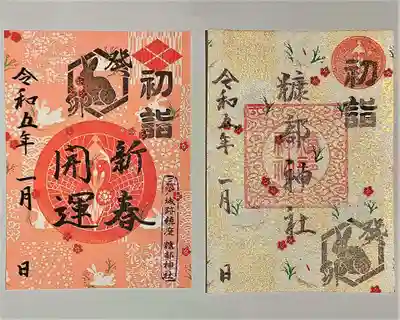 初詣
癸
卯
新春
開運
三戸城跡鎮座 糠部神社
令和五年 一月 日
初詣
糠部神社
令和五年 一月 日
癸
卯